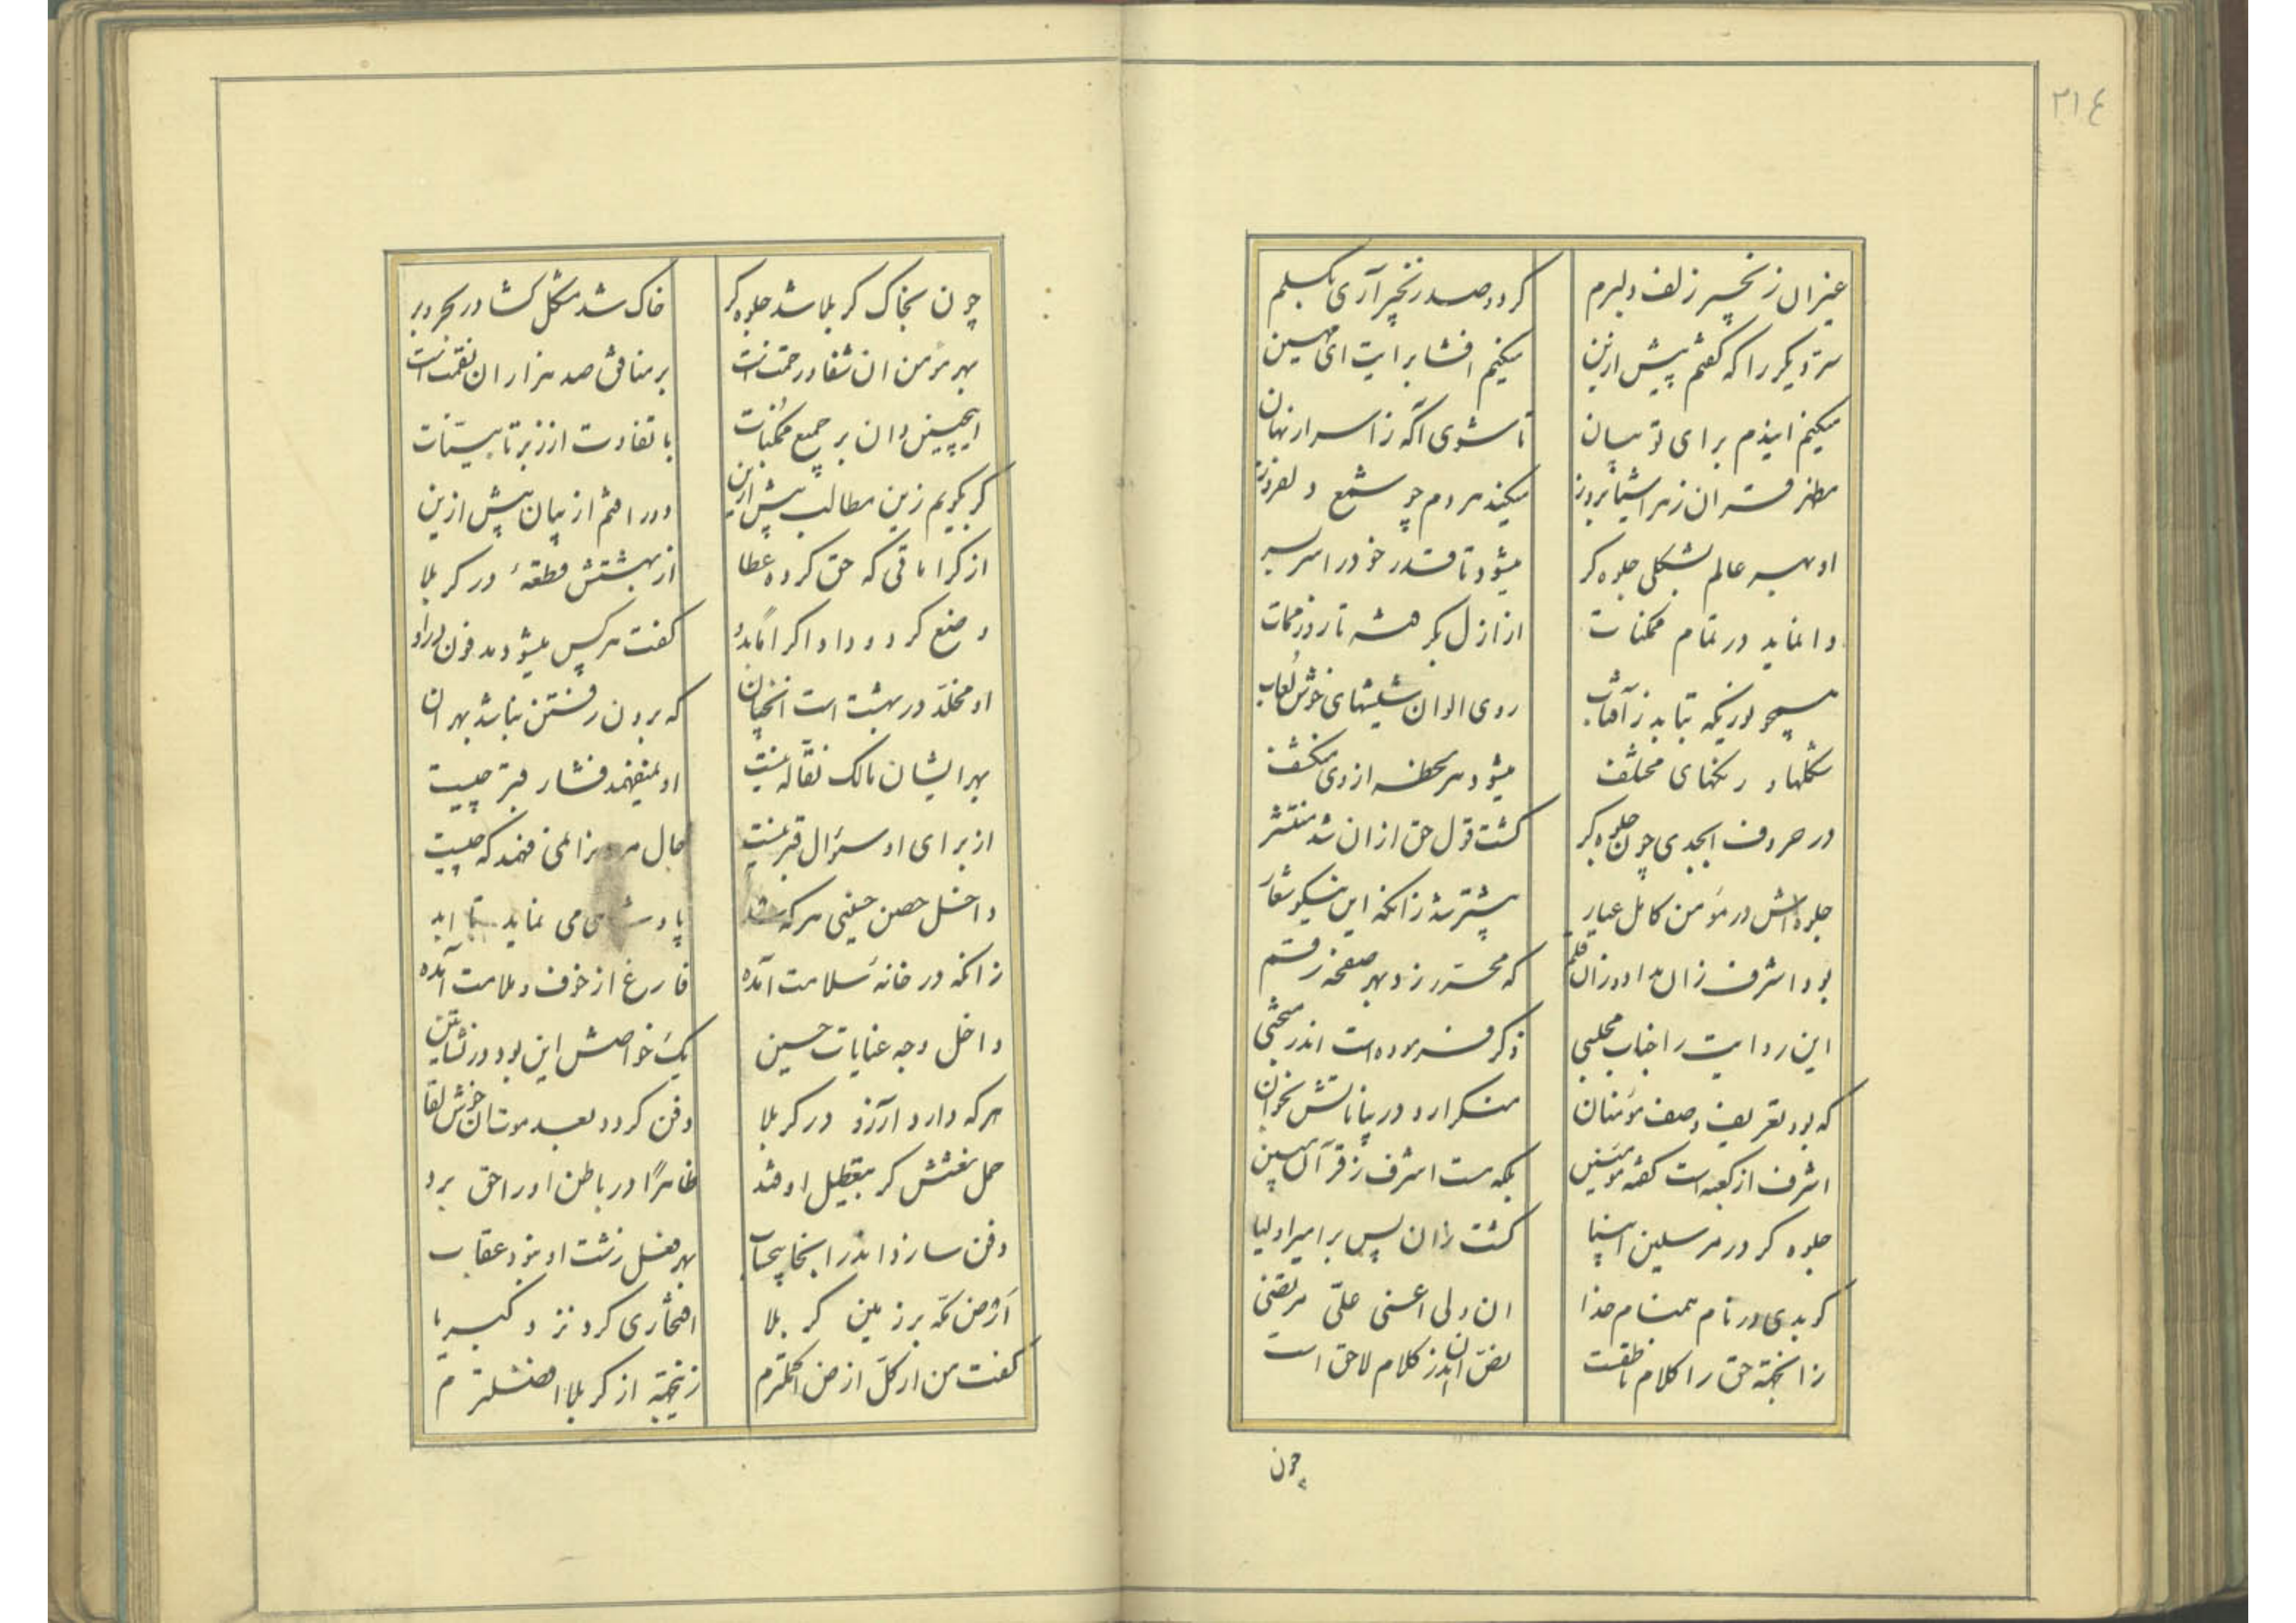 ۲۱٤
غیر ان زنجیر زلف دلبرم
کر دو صد زنجیر آری بکسلم
سر دیکر را که کفتم پیش ازین
میکنم افشا برایت ای مهین
میکنم ایندم برای تو بیان
تا شوی آکه ز اسرار نهان
مظهر قران ز هر اشیا بروز
میکند هر دم چو شمع دلفروز
او بهر عالم بشکلی جلوه کر
میشود تا قدر خود را سربسر
وا نماید در تمام ممکنات
از ازل بکرفته تا روز ممات
همچو نوریکه بتابد ز آفتاب
روی الوان شیشهای خوش لعاب
شکلها و رنکهای مختلف
میشود هر لحظه از وی منکشف
در حروف ابجدی چون جلوه کر
کشت قول حق از ان شد منتشر
جلوه‌اش در مؤمن کامل عیار
بیشتر شد زانکه این نیکو شعار
بود اشرف زان مداد و زان قلم
که محرر زد بهر صفحه رقم
این روایت را جناب مجلسی
ذکر فرموده است اندر مبحثی
که بود تعریف وصف مؤمنان
منکر ار در بیاناتش بخوان
اشرف از کعبه است کفته مؤمنین
بلکه هست اشرف ز قرآن مبین
جلوه کر در مرسلین انبیا
کشت زان پس بر امیر اولیا
کر بدی در نام همنام خدا
ان ولی اعنی علی مرتضی
زانجهة حق را کلام ناطقست
نص ان اندر کلام لاحق است
چون
چون بخاک کربلا شد جلوه کر
خاک شد مشکل کشا در بحر و بر
بهر مؤمن ان شفا و رحمت است
بر منافق صد هزاران نقمت است
اینچنین دان بر جمیع ممکنات
با تفاوت از زبر تا بینات
کر بکویم زین مطالب بیش ازین
دور افتم از بیان پیش ازین
از کراماتی که حق کرده عطا
از بهشتش قطعهٔ در کربلا
وضع کرد و داد اکراما بدو
کفت هر کس میشود مدفون در او
او مخلد در بهشت است انچنان
که برون رفتن نباشد بهر ان
بهر ایشان مالک نقاله نیست
او نمیفهمد فشار قبر چیست
از برای او سؤال قبر نیست
حال مرد را نمی فهمد که چیست
داخل حصن حسینی هر که شد
می نماید تا ابد
زانکه در خانه سلامت آمده
فارغ از خوف و ملامت آمده
داخل وجه عنایات حسین
یک خواصش این بود در نشأتین
هر که دارد آرزو در کربلا
دفن کردد بعد موت ان خوش لقا
حمل نعشش کر بتعطیل اوفتد
ظاهرًا در باطن او را حق برد
دفن سازد اندر اینجا بیحساب
بهر فعل زشت او نبود عقاب
ارض مکه بر زمین کربلا
افتخاری کرد نزد کبریا
کفت من از کل ارض اکرمم
زینجهة از کربلا افضلترم